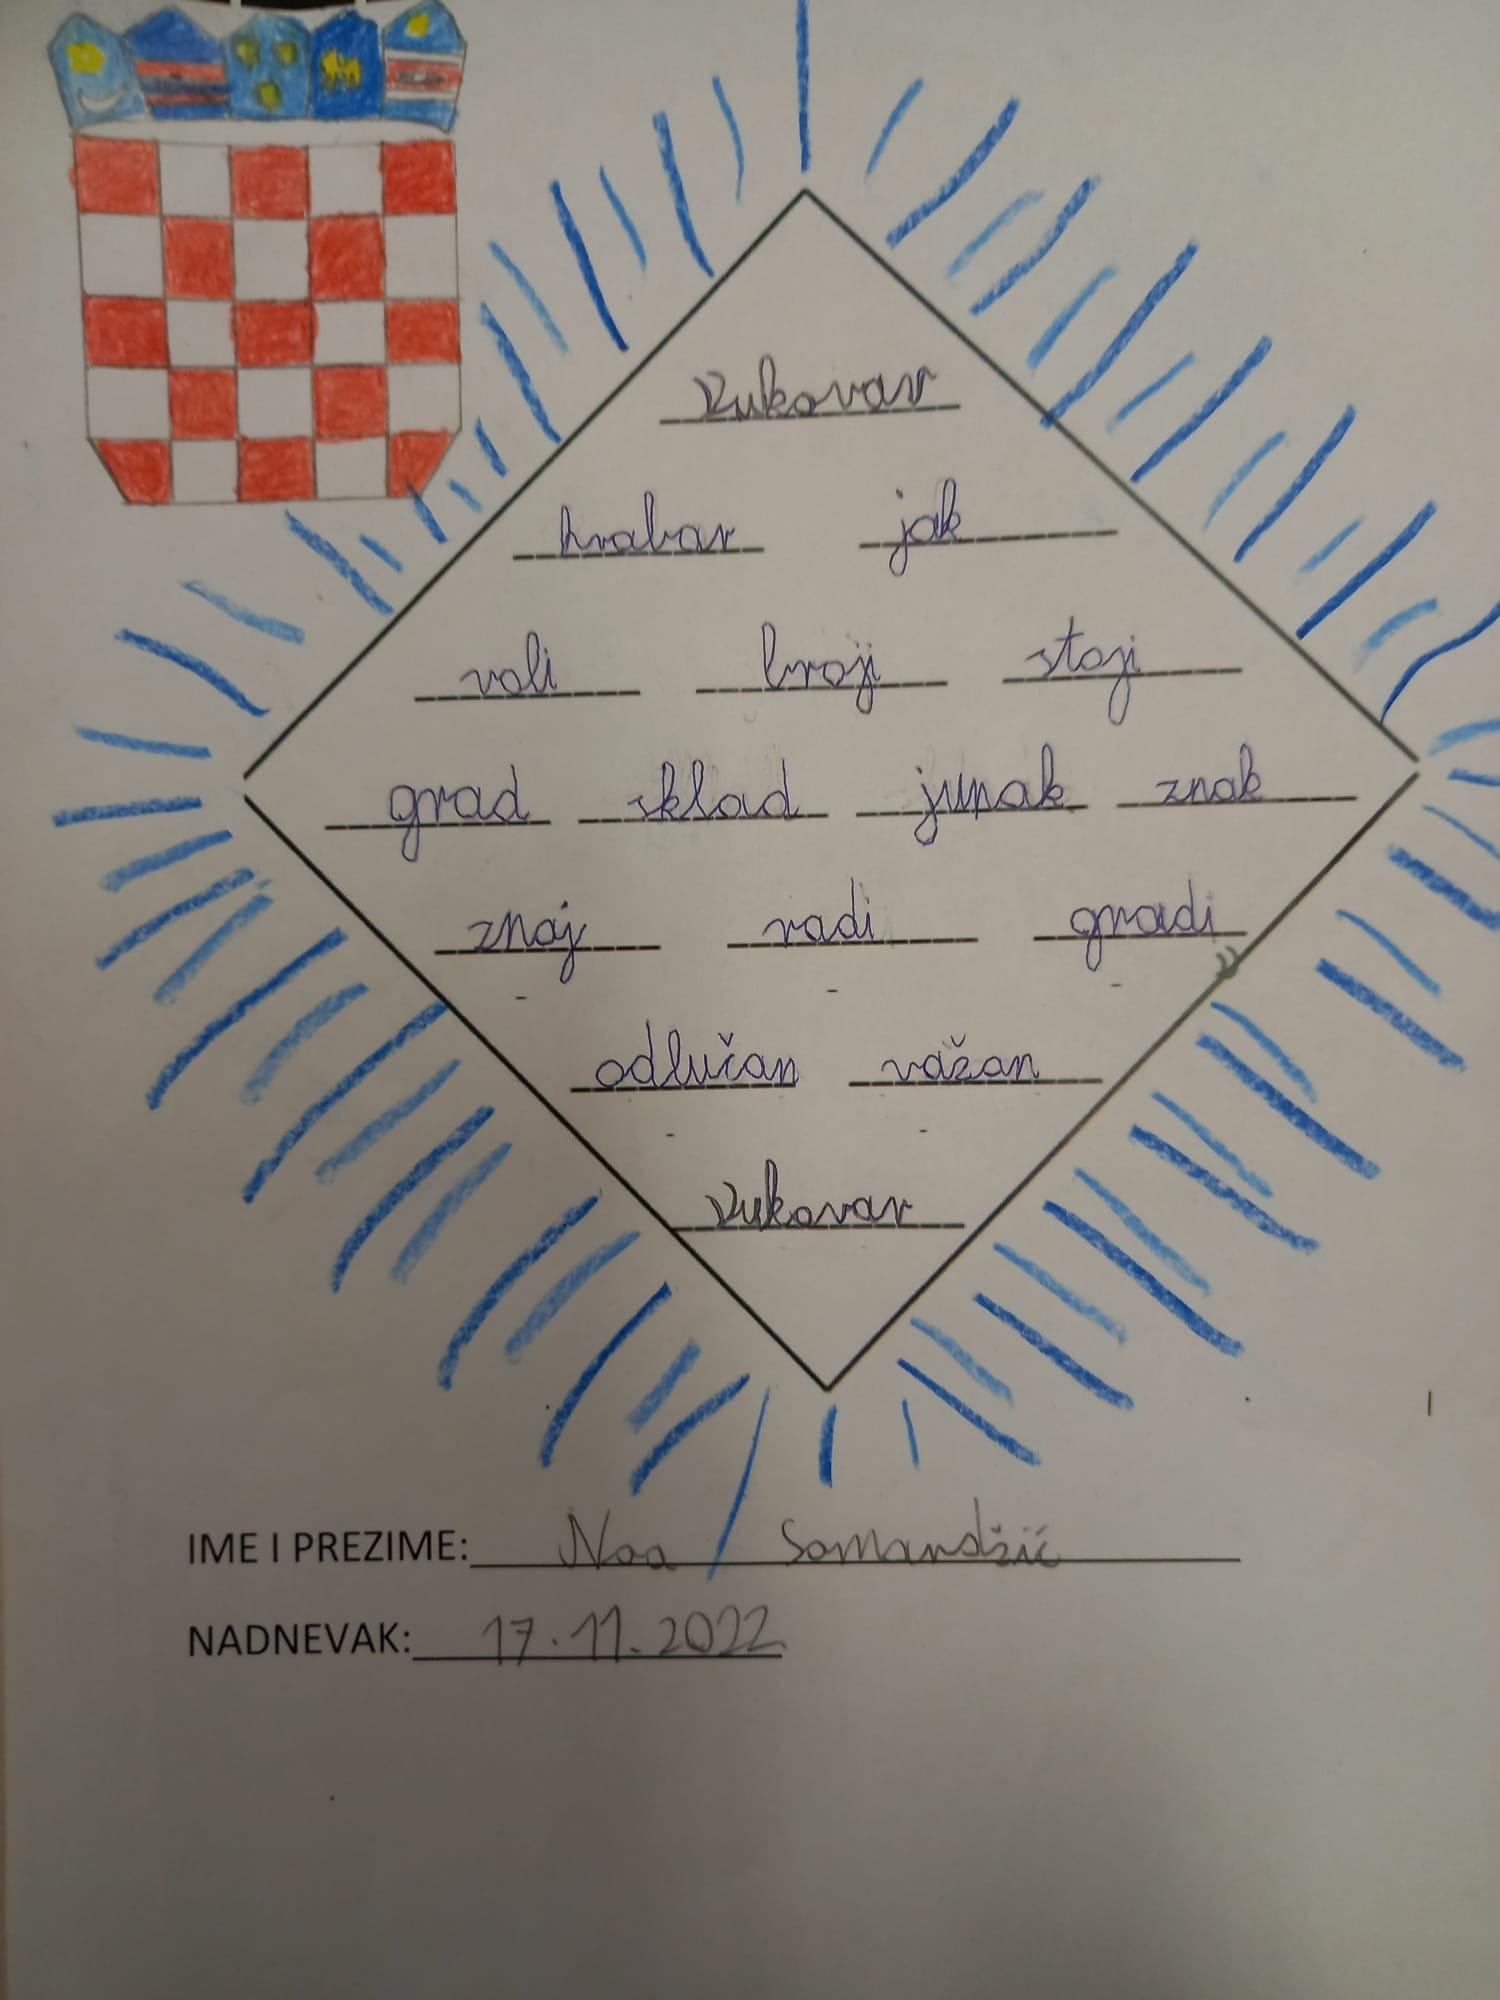 Vukovar
hrabar jak
voli broji stoji
grad sklad junak znak
znaj radi gradi
odlučan važan
Vukovar
IME I PREZIME: Noa Samardžić
NADNEVAK: 17.11.2022.